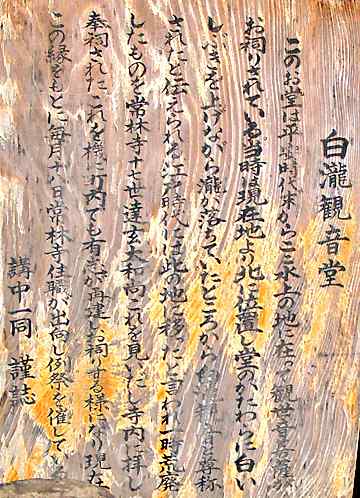 白瀧観音堂
このお堂は平安時代末からここ水上の地に在って観世音菩薩が
お祠りされている当時は現在地より北に位置し堂のかたわらに白い
しぶきを上げながら瀧が落ちていたところから白瀧観音と尊称
されたと伝えられる江戸時代には此の地に移ったと言われ一時荒廃
したものを常林寺十七世達玄大和尚これを見いだし寺内に拝し
奉祠されたこれを機に町内でも有志が再建しお祠りする様になり現在
この縁をもとに毎月十八日常林寺住職が出向し例祭を催して
講中一同 謹誌